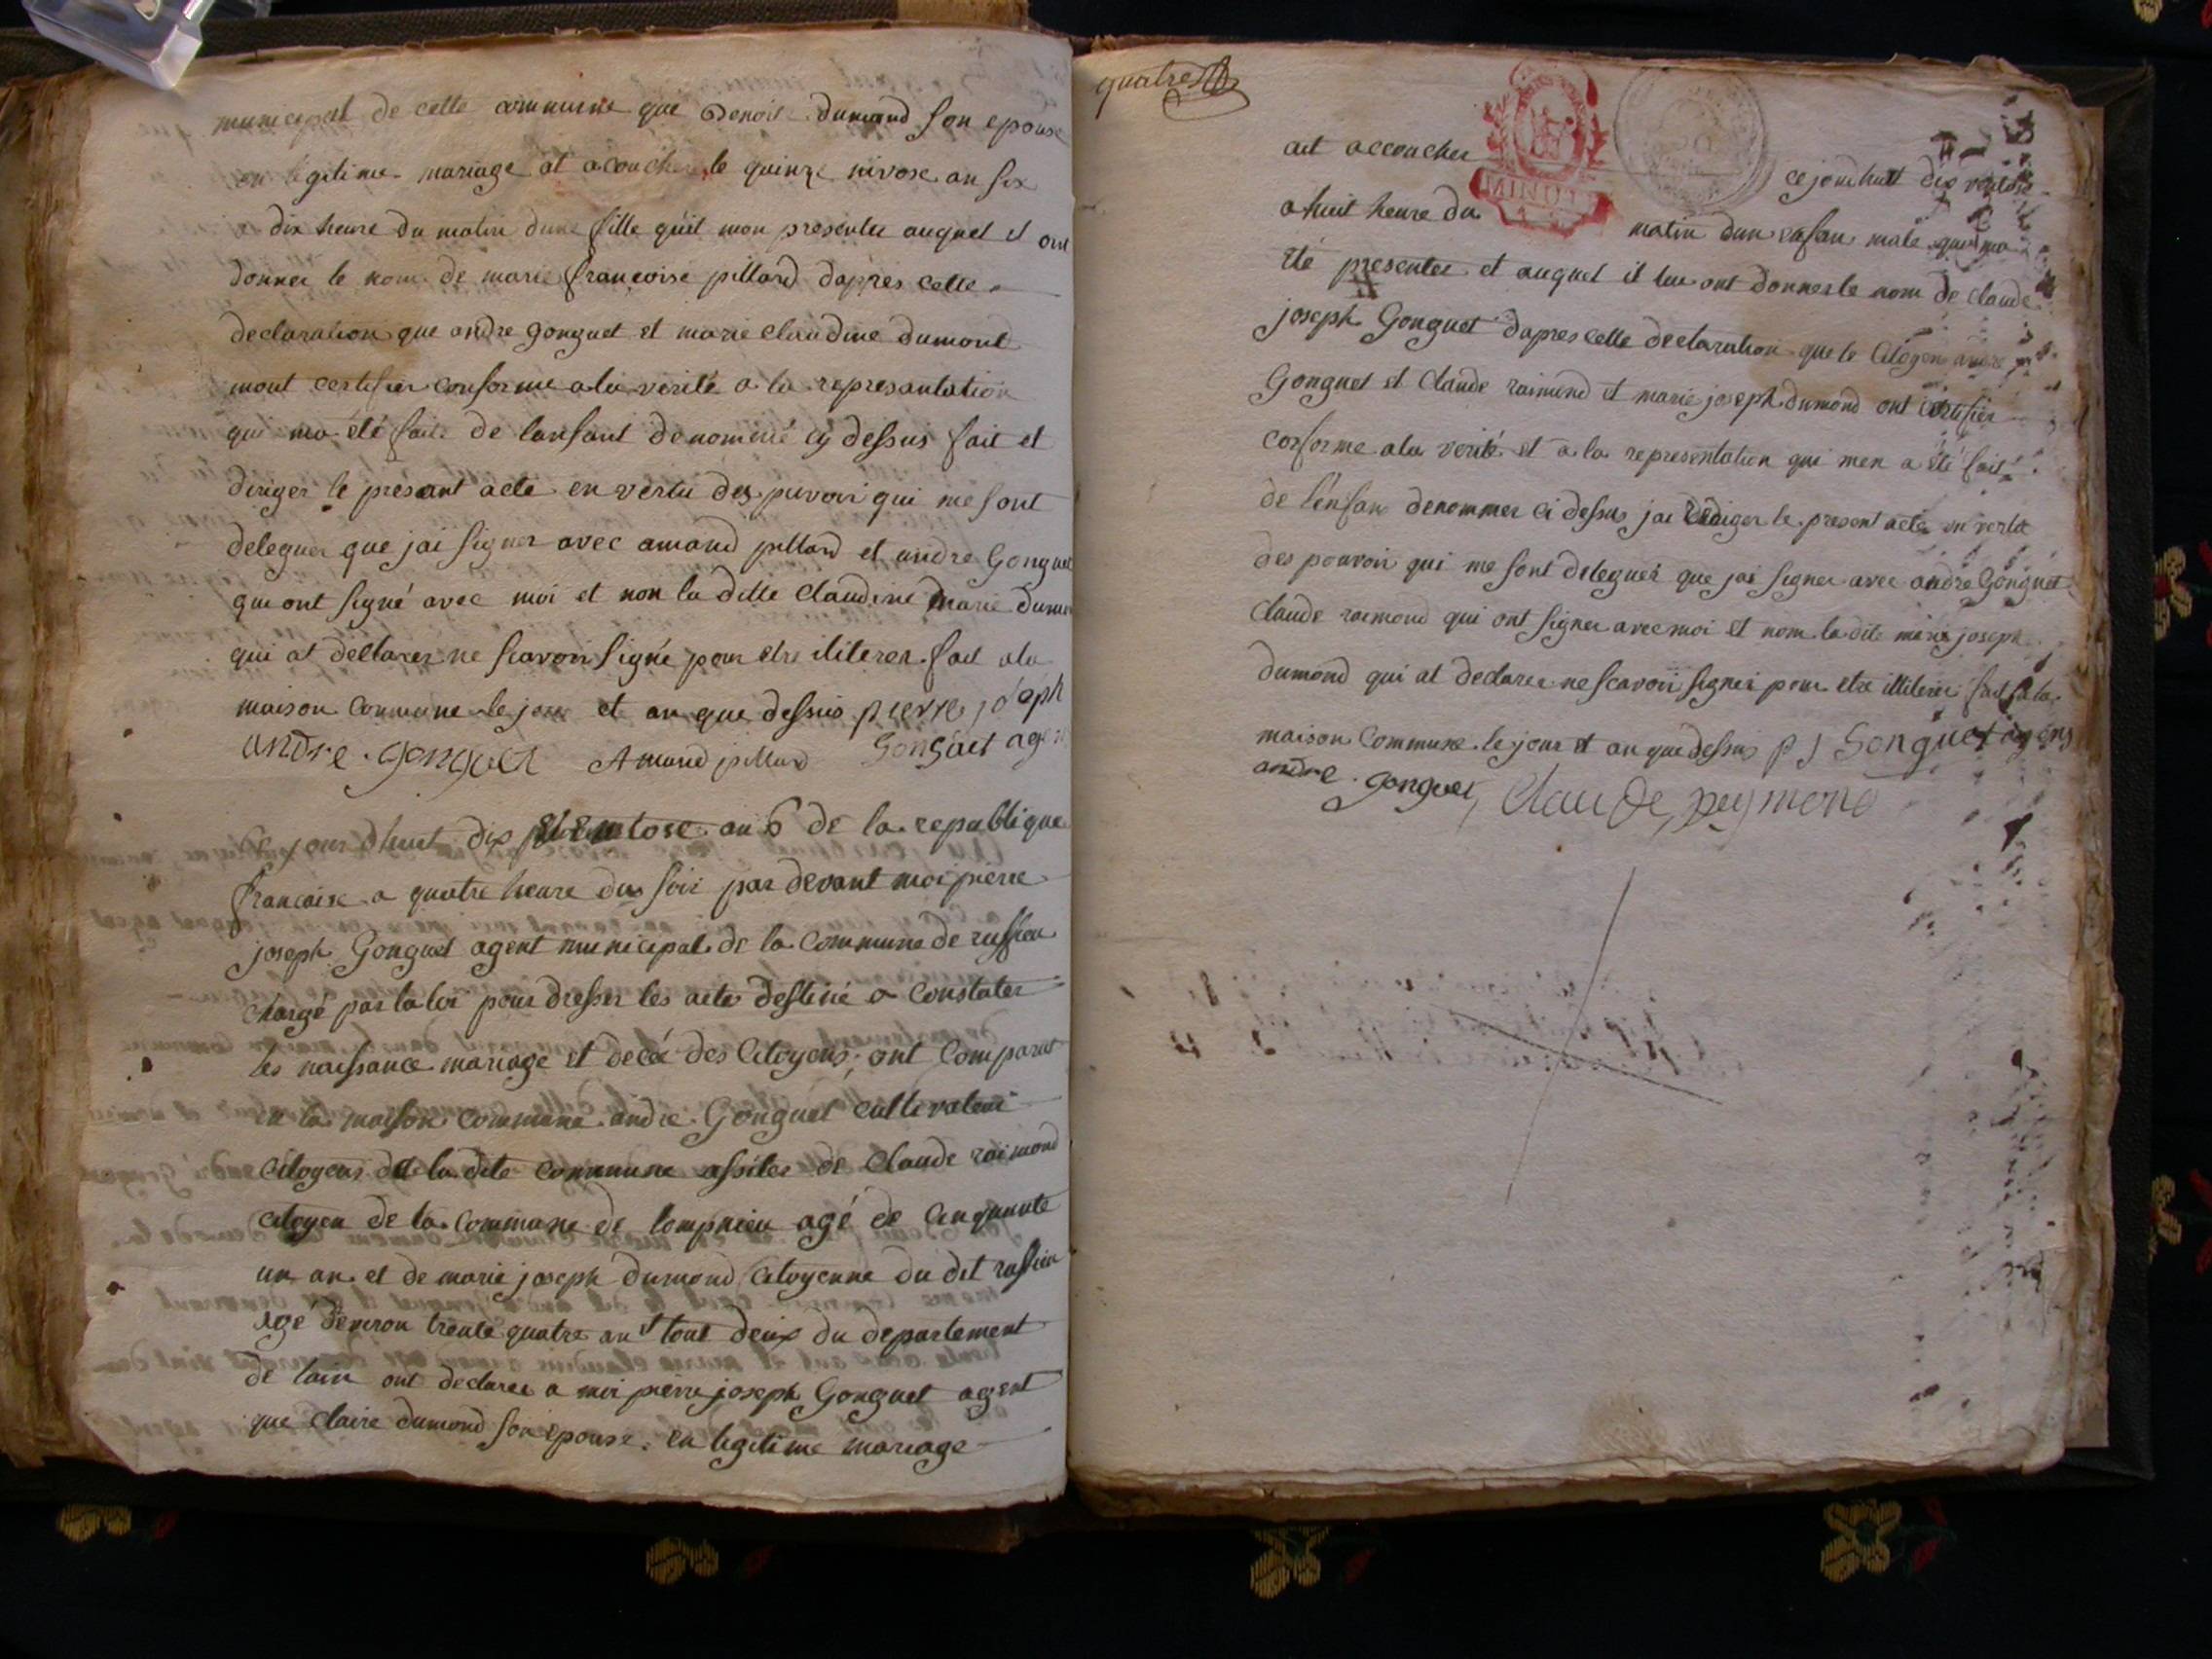 municipal de cette commune que Benoit dumond son epouse
en legitime mariage at acoucher le quinze nivose an six
a dix heure du matin dune fille quil mon presenter auquel il ont
donner le nom de marie francoise pillard dappres cette
declaration que andre gonguet et marie claudine dumont
mont certifier conforme ala verité a la represantation
qui ma été faite de lanfant denommé cy dessus fait et
diriger le presant acte en vertu des puvoir qui me sont
deleguer que jai signer avec amand pillard et andre Gonguet
qui ont signé avec moi et non la ditte Claudine marie dumon
qui at dellarer ne scavoir signé pour etre iliterer fait ala
maison Commune le jour et an que dessus pierre joseph
andre . gonguet Amand pillard Gonguet agent
Ce jour dhuit dix ventose an 6 de la republique
francaise a quatre heure du soir par devant moi pierre
joseph Gonguet agent municipal de la Commune de ruffieu
chargé par la loi pour dresser les acte destiné a Constater
les naissance mariage et decée des Citoyens, ont Comparut
en la maison commune andre Gonguet cultivateur
Citoyens de la dite commune assiter de Claude raimond
citoyen de la Commune de lompnieu agé de Cinquante
un an et de marie joseph dumond Citoyenne du dit ruffieu
agé denviron trente quatre an tout deux du departement
de lain ont declarer a moi pierre joseph Gonguet agent
que claire dumond son epouse en legitime mariage
quatre
ait accoucher ce jourdhuit dix ventose
a huit heure du matin dun enfan male qui ma
été presenter et auquel il lui ont donner le nom de claude
joseph Gonguet dapres cette declaration que le Citoyen andre
Gonguet et Claude raimond et marie joseph dumond ont certifier
conforme ala verité et a la representation qui men a été fait
de l'enfan denommer ci dessus jai rediger le present acte en vertu
des pouvoir qui me sont deleguer que jai signer avec andre Gonguet
Claude raimond qui ont signer avec moi et nom la dite marie joseph
dumond qui at declarer ne scavoir signer pour etre illiterer fait a la
maison Commune le jour et an que dessus p j Gonguet agens
andre . gonguet, Claude reymond